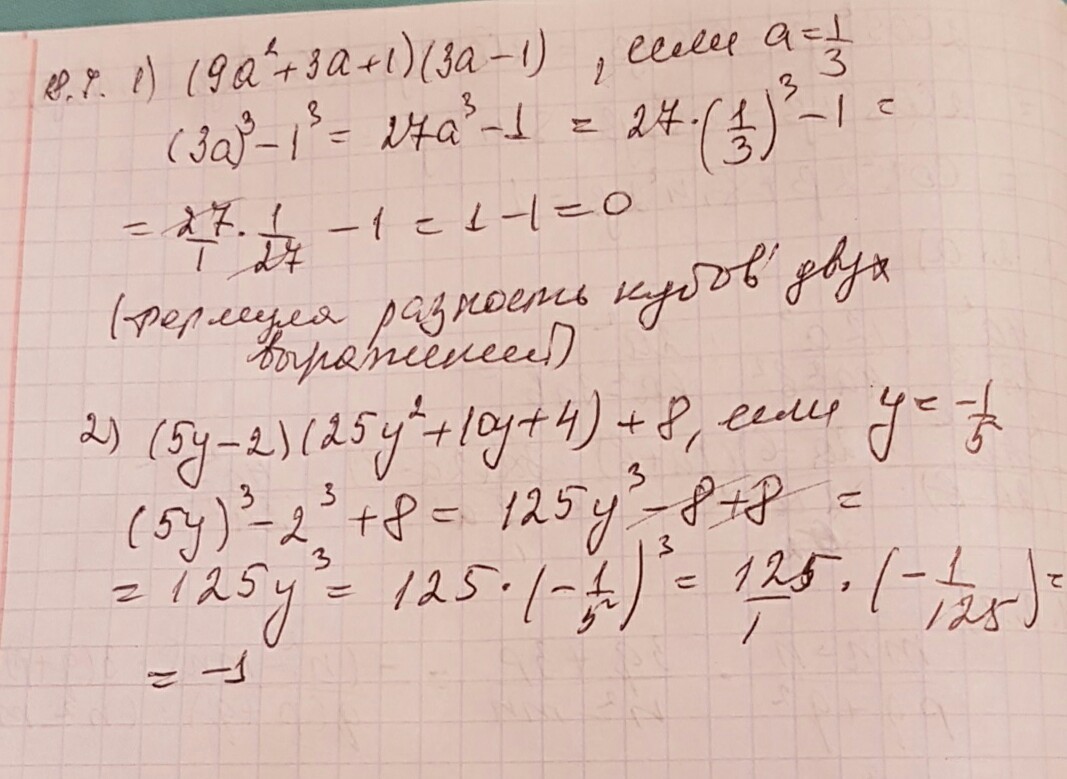 18.7. 1) (9a²+3a+1)(3a-1) , если a=1/3
(3a)³-1³= 27a³-1 = 27·(1/3)³-1=
= 27/1·1/27 -1 = 1-1=0
(формула разность кубов двух
выражений)
2) (5y-2)(25y²+10y+4)+8, если y=-1/5
(5y)³-2³+8= 125y³-8+8 =
=125y³= 125·(-1/5)³= 125/1·(-1/125)=
= -1